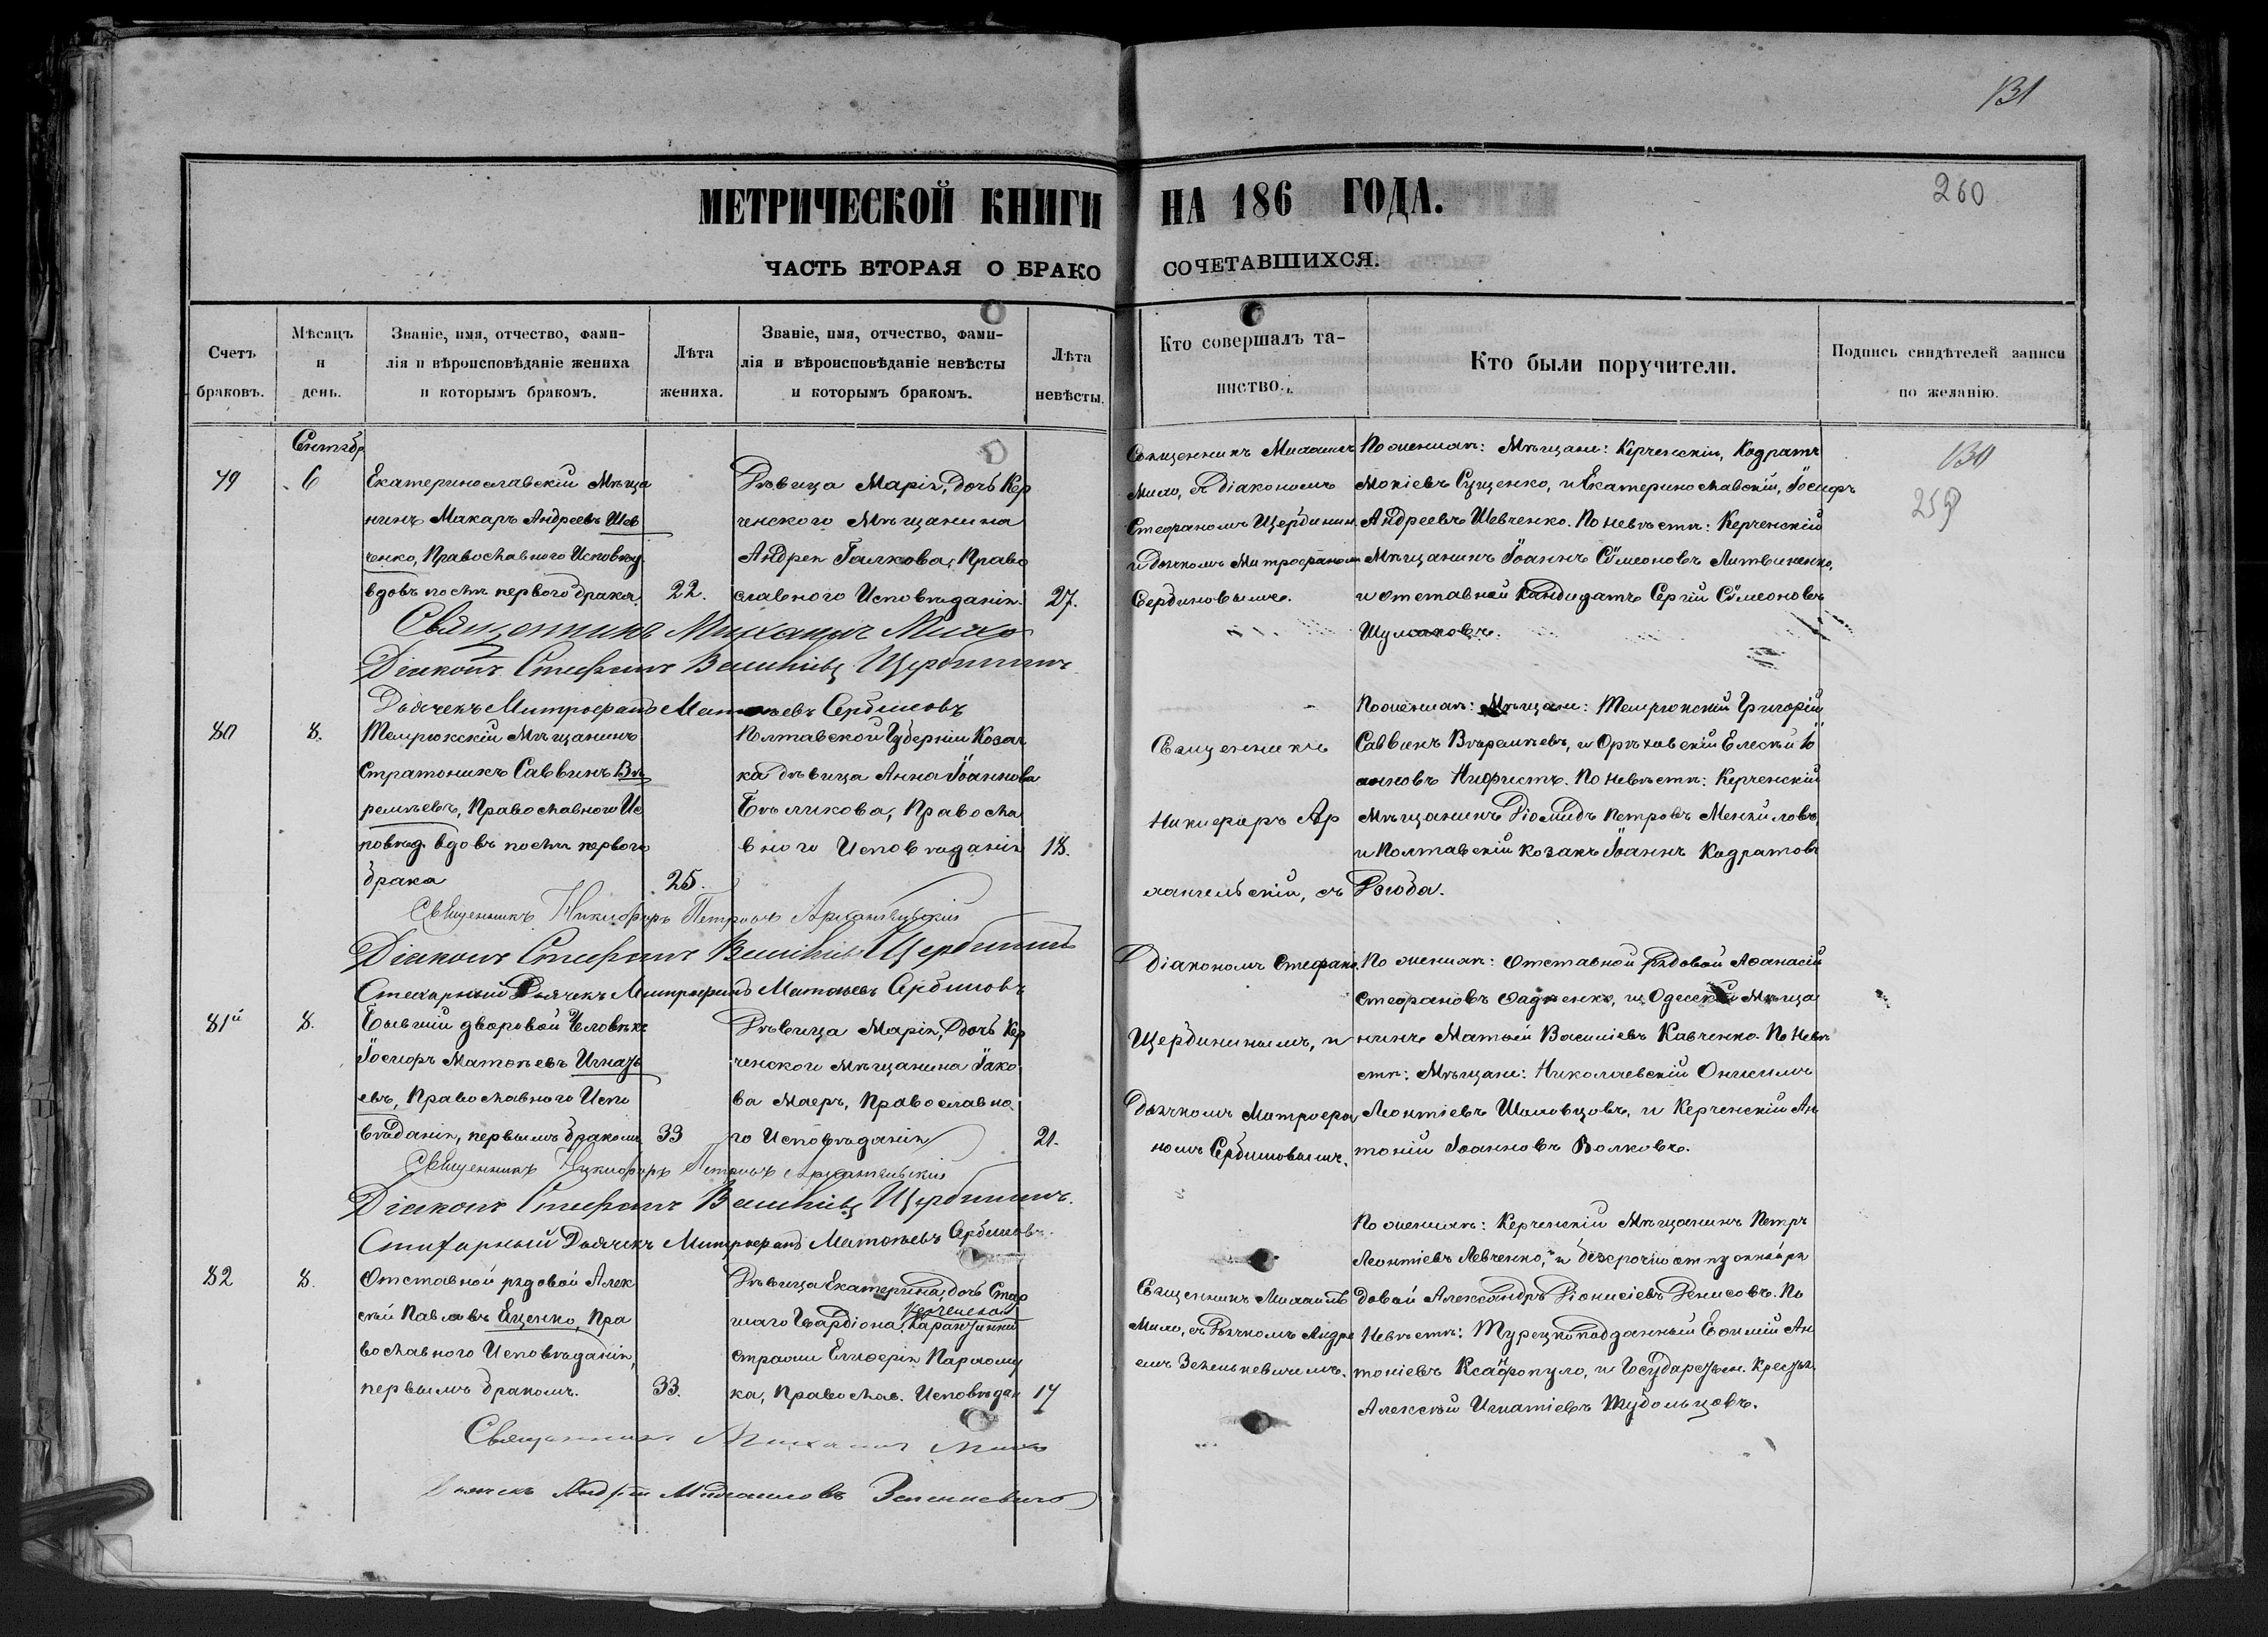 131
МЕТРИЧЕСКОЙ КНИГИ НА 186 ГОДА.
260
ЧАСТЬ ВТОРАЯ О БРАКОСОЧЕТАВШИХСЯ.
Счетъ браковъ.
Мѣсяцъ и день.
Званіе, имя, отчество, фами-
лія и вѣроисповѣданіе жениха
и которымъ бракомъ.
Лѣта жениха.
Званіе, имя, отчество, фами-
лія и вѣроисповѣданіе невѣсты
и которымъ бракомъ.
Лѣта невѣсты.
Кто совершалъ та-
инство.
Кто были поручители.
Подпись свидѣтелей записи
по желанію.
Сентябр
79
6
Екатеринославскій Мѣща
нинъ Макаръ Андреевъ Шев
ченко, Православного Исповѣд.
вдовъ послѣ первого брака.
22.
Дѣвица Марія, дочь Кер
ченского Мѣщанина
Андрея Галкова, Право
славного Исповѣданія.
27.
Священникъ Михаилъ
Мило, съ діакономъ
Стефаномъ Щербинин.
и дьячкомъ Митрофаном
Сербиновымъ.
По женихѣ: Мѣщане: Керченскій, Кодратъ
Мокіевъ Сущенко, и Екатеринославскій, Іосифъ
Андреевъ Шевченко. По невѣстѣ: Керченскій
Мѣщанинъ Іоаннъ Сѵмеоновъ Литвиненко,
и отставной Кандидатъ Сергій Сѵмеоновъ
Шумаковъ.
130
259
Священникъ Михаилъ Мило
Діаконъ Стефанъ Васильевъ Щербининъ
Дьячекъ Митрофанъ Матвѣевъ Сербиновъ
80
8.
Темрюкскій Мѣщанинъ
Стратоникъ Саввинъ Вѣ
ремѣевъ, Православного Ис
повѣд. вдовъ послѣ первого
брака
25.
Полтавской Губерніи Козач
ка дѣвица Анна Іоаннова
Бѣликова, Правосла
вного Исповѣданія
18.
Священникъ
Никифоръ Ар
хангельскій, съ
По женихѣ: Мѣщане: Темрюкскій Григорій
Саввинъ Вѣремѣевъ, и Орѣховскій Елесѣй Іо
анновъ Нифистъ. По невѣстѣ: Керченскій
Мѣщанинъ Діомидъ Петровъ Менжиловъ,
и Полтавскій козакъ Іоаннъ Кодратовъ
Дзюба.
Священникъ Никифоръ Петровъ Архангельскій
Діаконъ Стефанъ Васильевъ Щербининъ
Стихарный Дьячекъ Митрофанъ Матвѣевъ Сербиновъ
81й
8.
Бывшій дворовой Человѣкъ
Іосифъ Матвѣевъ Игнать
евъ, Православного Испо
вѣданія, первымъ бракомъ
33
Дѣвица Марія, дочь Кер
ченского Мѣщанина Іако
ва Маеръ, Православно
го Исповѣданія
21.
Діакономъ Стефано.
Щербининымъ, и
Дьячкомъ Митрофа
номъ Сербиновымъ.
По женихѣ: Отставной рядовой Аѳанасій
Стефановъ Садченко, и Одесскій Мѣща
нинъ Матѳій Василіевъ Кавченко. По невѣ
стѣ: Мѣщане: Николаевскій Онисимъ
Леонтіевъ Шаповцовъ, и Керченскій Ан
тоній Іоанновъ Волковъ.
Священникъ Никифоръ Петровъ Архангельскій
Діаконъ Стефанъ Васильевъ Щербининъ.
Стихарный Дьячекъ Митрофанъ Матвѣевъ Сербиновъ.
82
8.
Отставной рядовой Алек
сѣй Павловъ Ященко, Пра
вославного Исповѣданія,
первымъ бракомъ.
33.
Дѣвица Екатерина, дочь Стар
шаго Гвардіона Керченской Карантинной
стражи Елиферія Пархому
ка, Православ. Исповѣдан
17
Священникъ Михаилъ
Мило, съ Дьячкомъ Андре
емъ Зенькевичемъ.
По женихѣ: Керченскій Мѣщанинъ Петръ
Леонтіевъ Левченко, и безсрочно отпускной ря
довой Александръ Діонисіевъ Денисовъ. По
Невѣстѣ: Турецко подданный Евѳимій Ан
тоніевъ Ксанфопуло, и Государствен. Крестьян.
Алексѣй Игнатіевъ Тудольцовъ.
Священникъ Михаилъ Мило
Дьячекъ Андрей Михаиловъ Зенькевичъ